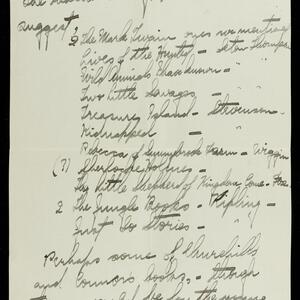 suggest
2 The Mark Twain ones
Lives of the Hunted - Seton Thompson
Wild Animals I have known - "
Two Little Savages - "
Treasure Island - Stevenson -
Kidnapped - "
Rebecca of Sunnybrook Farm - Wiggin
(?) Sherlocke Holmes -
The Little Shepherd of Kingdom Come - Fox
2 The Jungle Books - Kipling -
Just So Stories - "
Perhaps some of Churchills
and Connors books, though